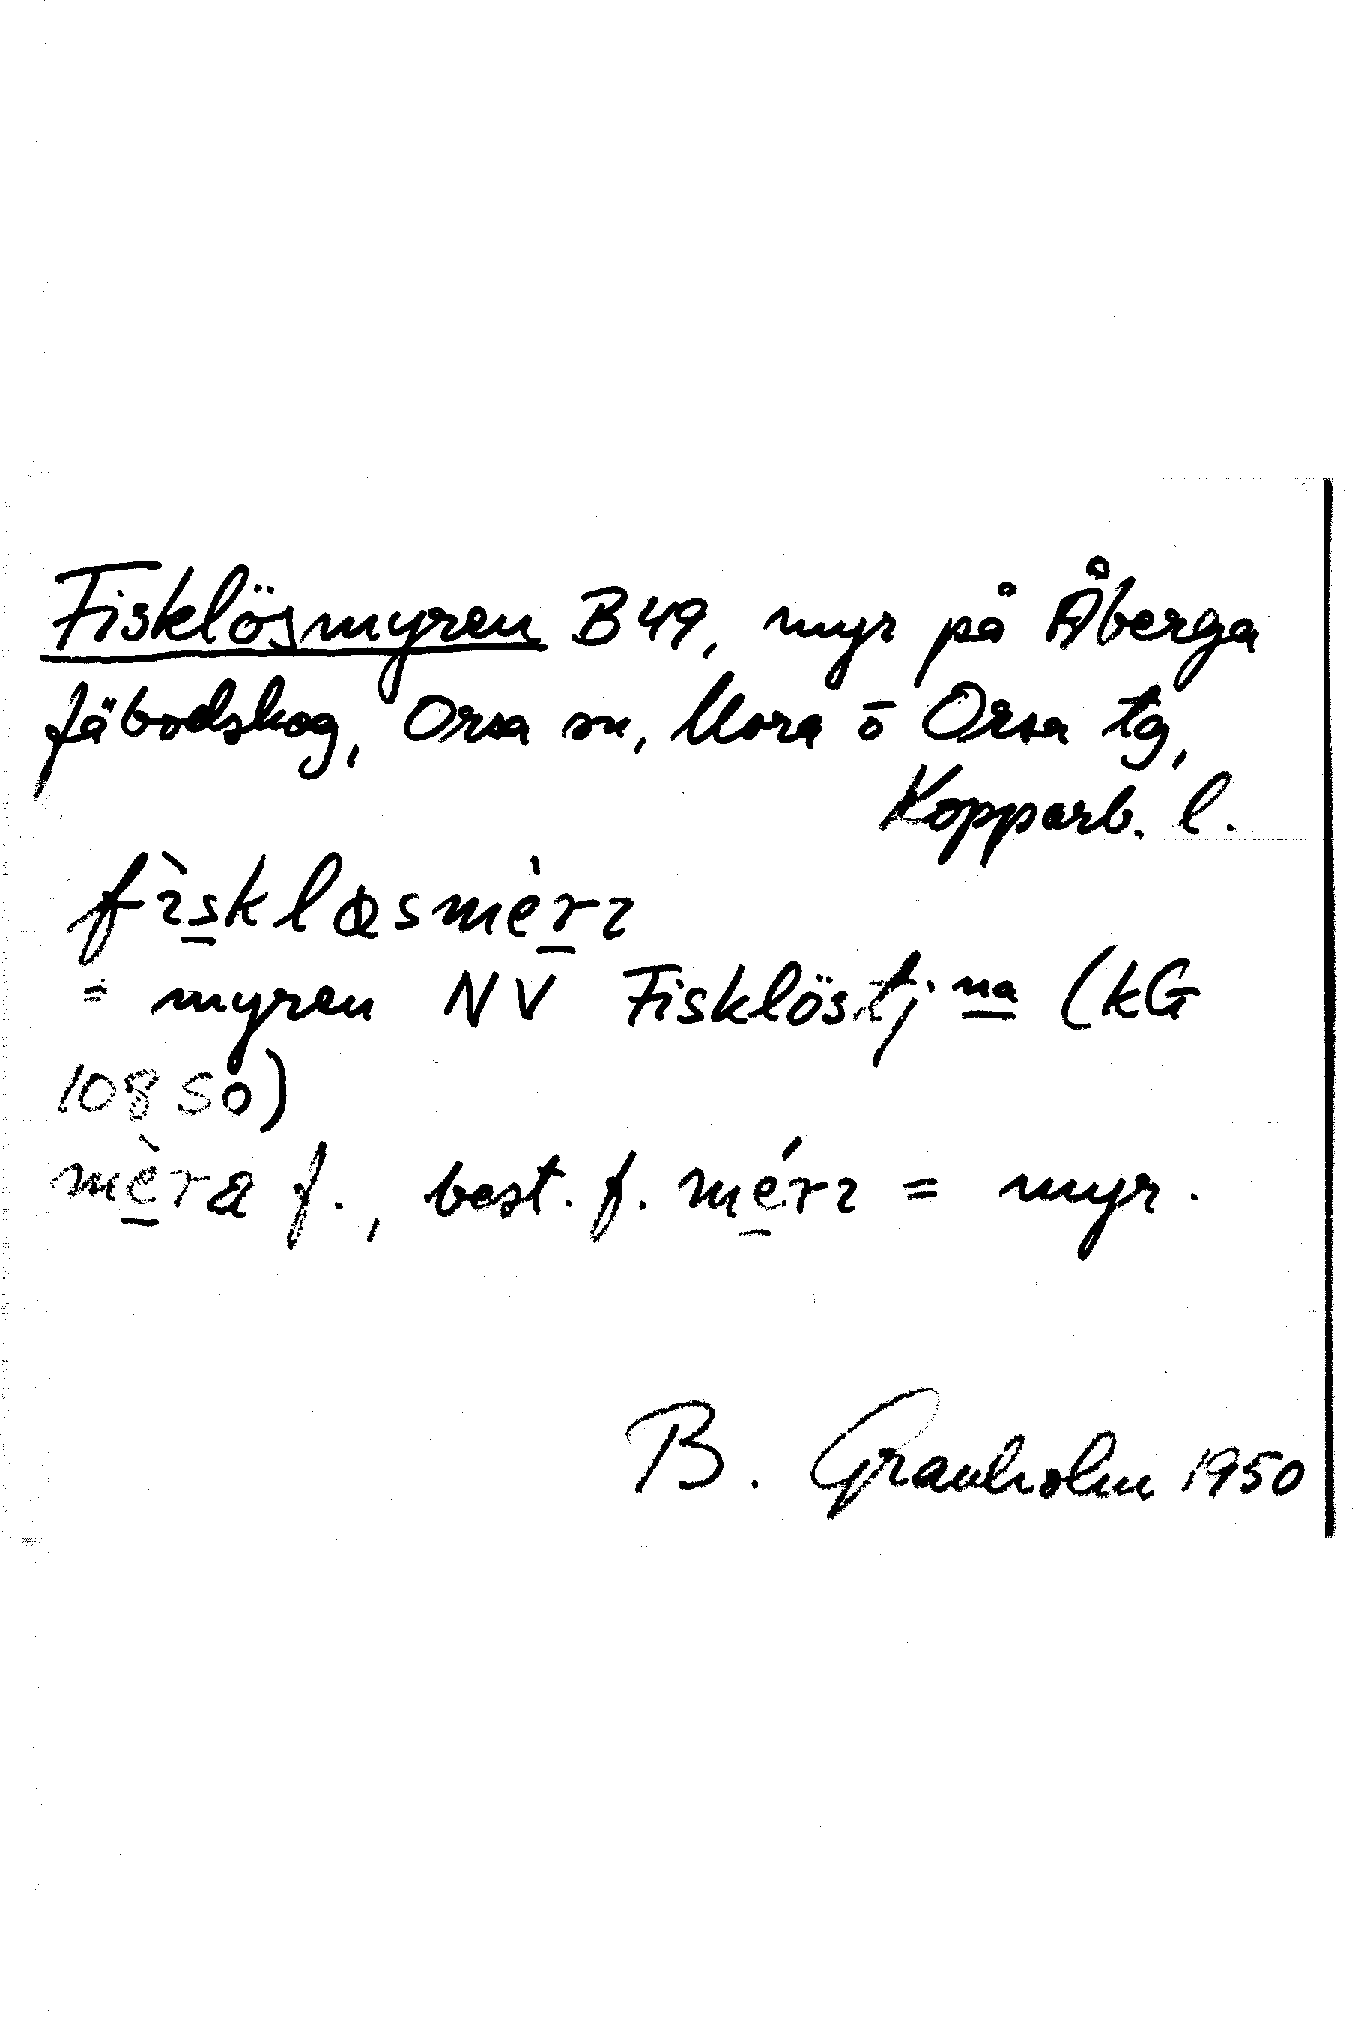 Fisklösmyren B49, myr på Åberga
fäbodskog, Orsa sn, Mora o Orsa tg,
Kopparb. l.
= myren NV Fisklöstj na (kG
10850)
f., best. f. = myr.
B. Granholm 1950